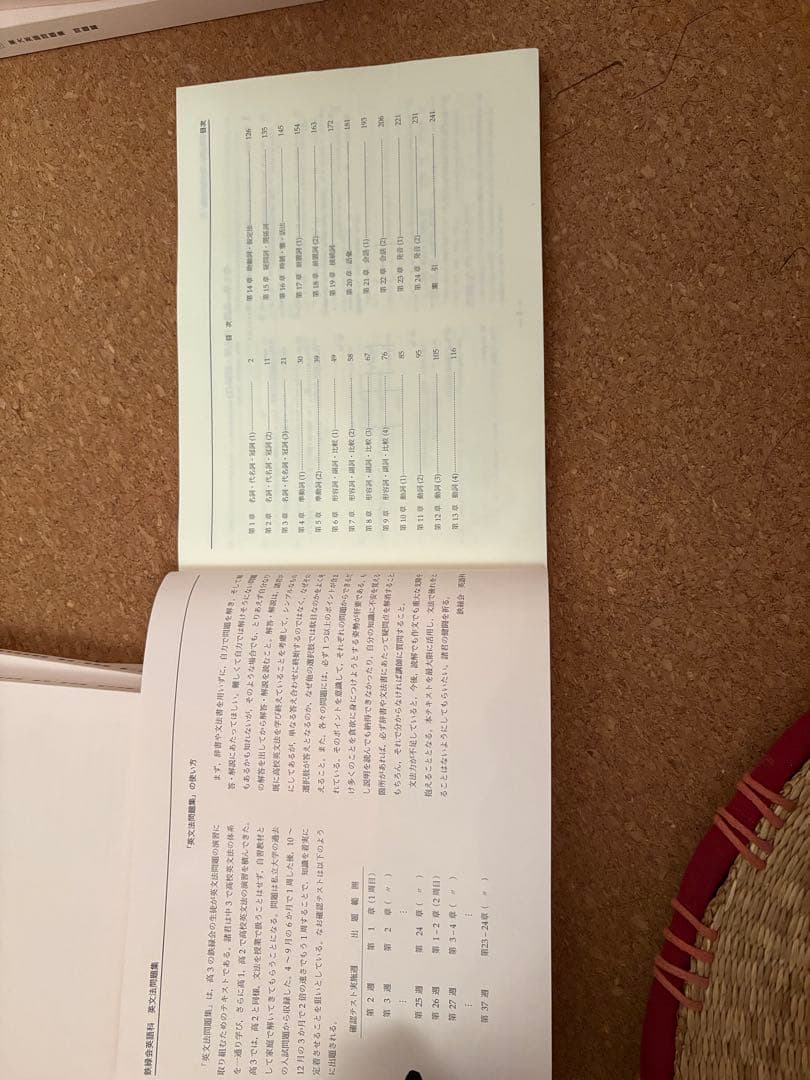 鉄緑会英語科 英文法問題集
『英文法問題集』の使い方
『英文法問題集』は、高3の鉄緑会の生徒が英文法問題の演習に
取り組むためのテキストである。諸君は中3で高校英文法の体系
を一通り学び、さらに高1、高2で高校英文法の演習を積んできた。
高3では、高2と同様、文法を授業で扱うことはせず、自習教材と
して家庭で解いてきてもらうことになる。問題は私立大学の過去
の入試問題から収録した。4～9月の6か月で1周した後、10～
12月の3か月で2倍の速さでもう1周することで、知識を着実に
定着させることを狙いとしている。なお確認テストは以下のよう
に出題される。
確認テスト実施週 出題範囲
第2週 第1章(1周目)
第3週 第2章(〃)
⋮ ⋮
第25週 第24章(〃)
第26週 第1-2章(2周目)
第27週 第3-4章(〃)
⋮ ⋮
第37週 第23-24章(〃)
まず、辞書や文法書を用いずに、自力で問題を解き、そして解
答・解説にあたってほしい。難しくて自力では解けそうにない問題
もあるかも知れないが、そのような場合でも、とりあえず自分なり
の解答を出してから解答・解説を読むこと。解答・解説は、諸君が
既に高校英文法を学び終えていることを考慮して、シンプルなもの
にしてあるが、単なる答え合わせに終始するのではなく、なぜその
選択肢が答えとなるのか、なぜ他の選択肢では駄目なのかをよく考
えること。また、各々の問題には、必ず1つ以上のポイントが含ま
れている。そのポイントを意識して、それぞれの問題からできるだ
け多くのことを貪欲に身につけようとする姿勢が肝要である。も
し説明を読んでも納得できなかったり、自分の知識に不安を覚える
箇所があれば、必ず辞書や文法書にあたって疑問点を解消すること。
もちろん、それで分からなければ講師に質問すること。
文法力が不足していると、今後、読解でも作文でも重大な支障を
抱えることとなる。本テキストを最大限に活用し、文法で後れをと
ることはないようにしてもらいたい。諸君の健闘を祈る。
鉄緑会 英語科
目次
目 次
第1章 名詞・代名詞・冠詞(1) 2
第2章 名詞・代名詞・冠詞(2) 11
第3章 名詞・代名詞・冠詞(3) 21
第4章 準動詞(1) 30
第5章 準動詞(2) 39
第6章 形容詞・副詞・比較(1) 49
第7章 形容詞・副詞・比較(2) 58
第8章 形容詞・副詞・比較(3) 67
第9章 形容詞・副詞・比較(4) 76
第10章 動詞(1) 85
第11章 動詞(2) 95
第12章 動詞(3) 105
第13章 動詞(4) 116
第14章 助動詞・仮定法 126
第15章 疑問詞・関係詞 135
第16章 時制・態・話法 145
第17章 前置詞(1) 154
第18章 前置詞(2) 163
第19章 接続詞 172
第20章 語彙 181
第21章 会話(1) 193
第22章 会話(2) 206
第23章 発音(1) 221
第24章 発音(2) 231
索 引 241